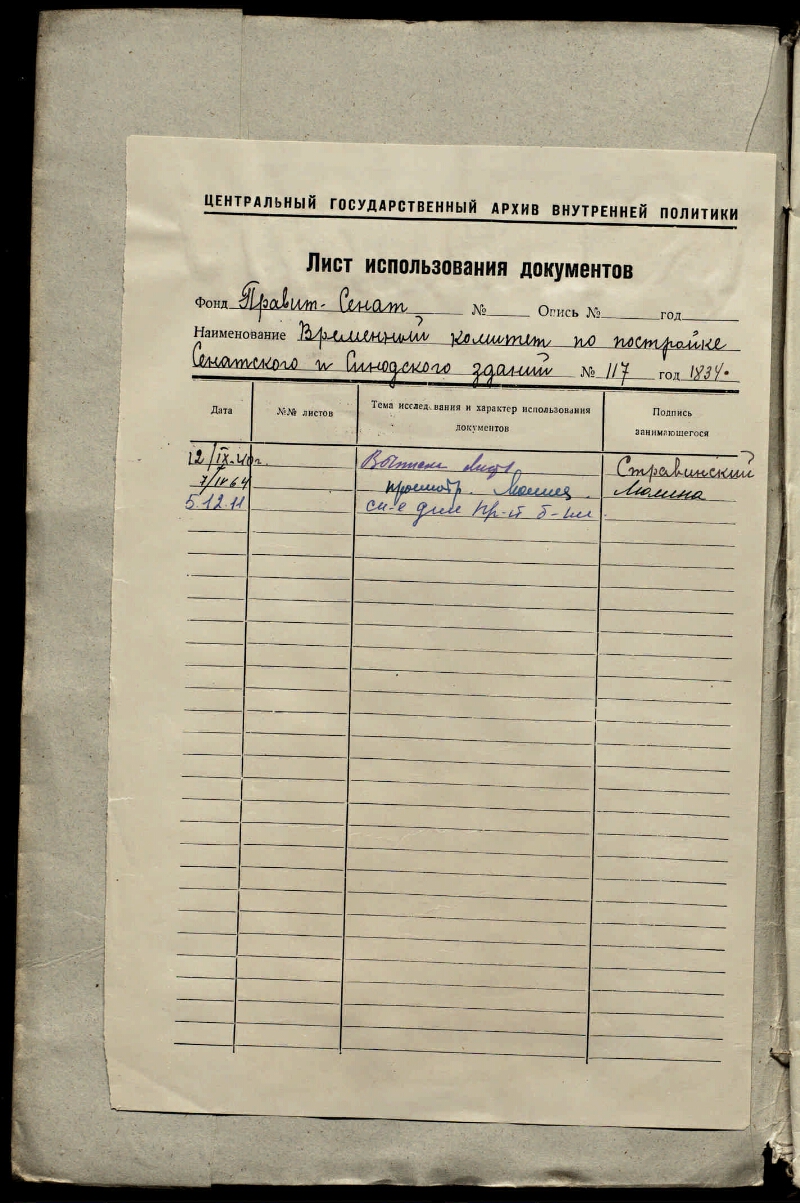 ЦЕНТРАЛЬНЫЙ ГОСУДАРСТВЕННЫЙ АРХИВ ВНУТРЕННЕЙ ПОЛИТИКИ
Лист использования документов
Фонд Правит. Сенат № Опись № год
Наименование Временный комитет по постройке
Сенатского и Синодского зданий № 117 год 1834.
Дата №№ листов Тема исследования и характер использования документов Подпись занимающегося
12/IX-40г. Выписки Стравинский
7/IV 64 просмотр. Люлина
5.12.11